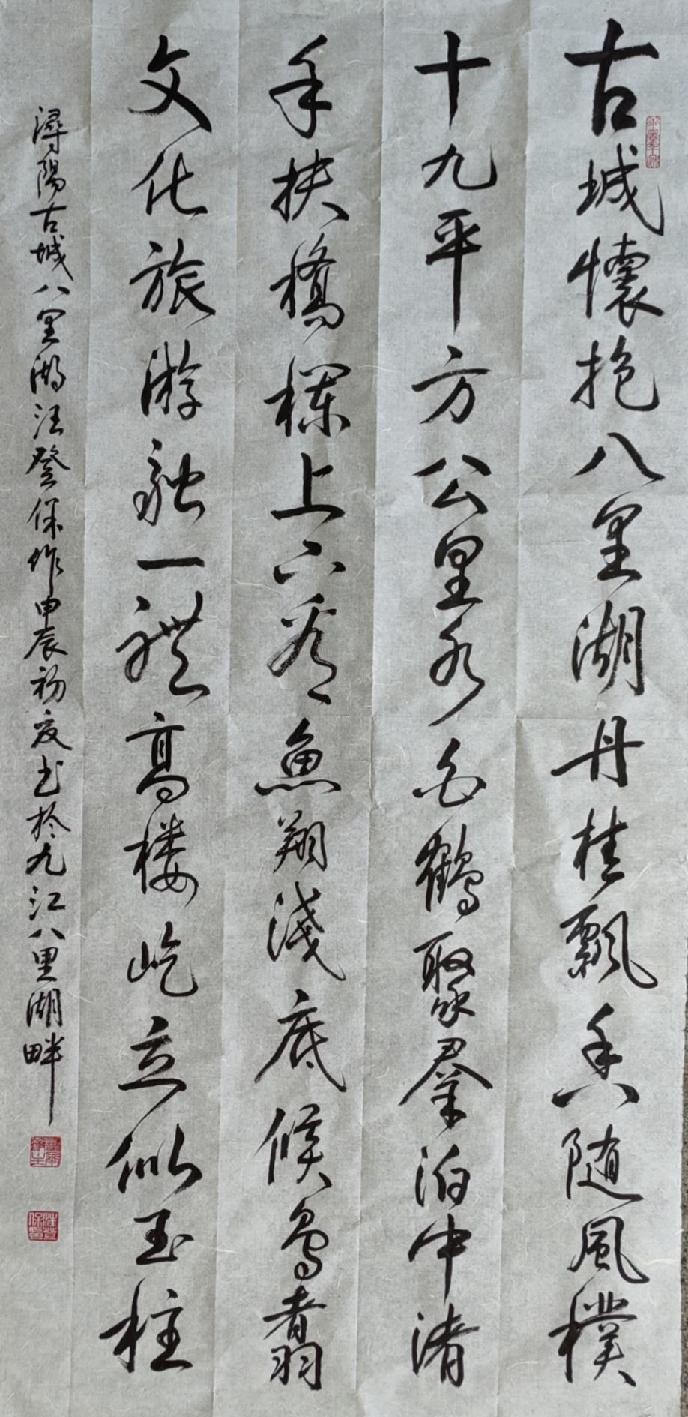 古城懷抱八里湖丹桂飄香随風樸
十九平方公里水白鶴聚羣泊中渚
手扶橋欄上下看魚翔淺底候鳥翥
文化旅游融一體高楼屹立似玉柱
潯陽古城八里湖汪登保作甲辰初夏书於九江八里湖畔